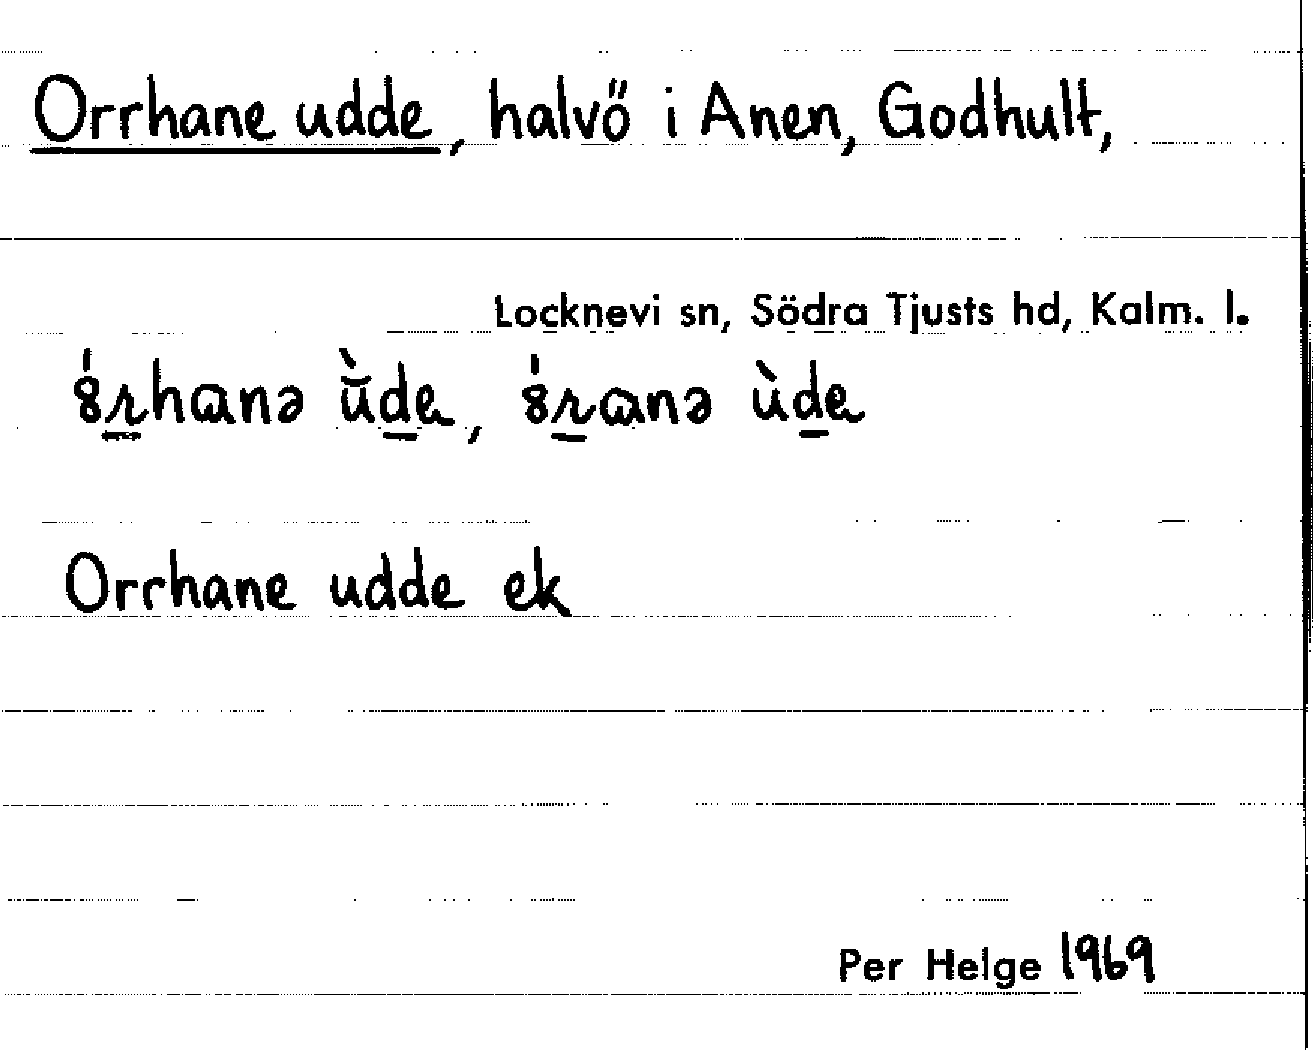 Orrhane udde, halvö i Anen, Godhult,
Locknevi sn, Södra Tjusts hd, Kalm. l.
Orrhane udde ek
Per Helge 1969